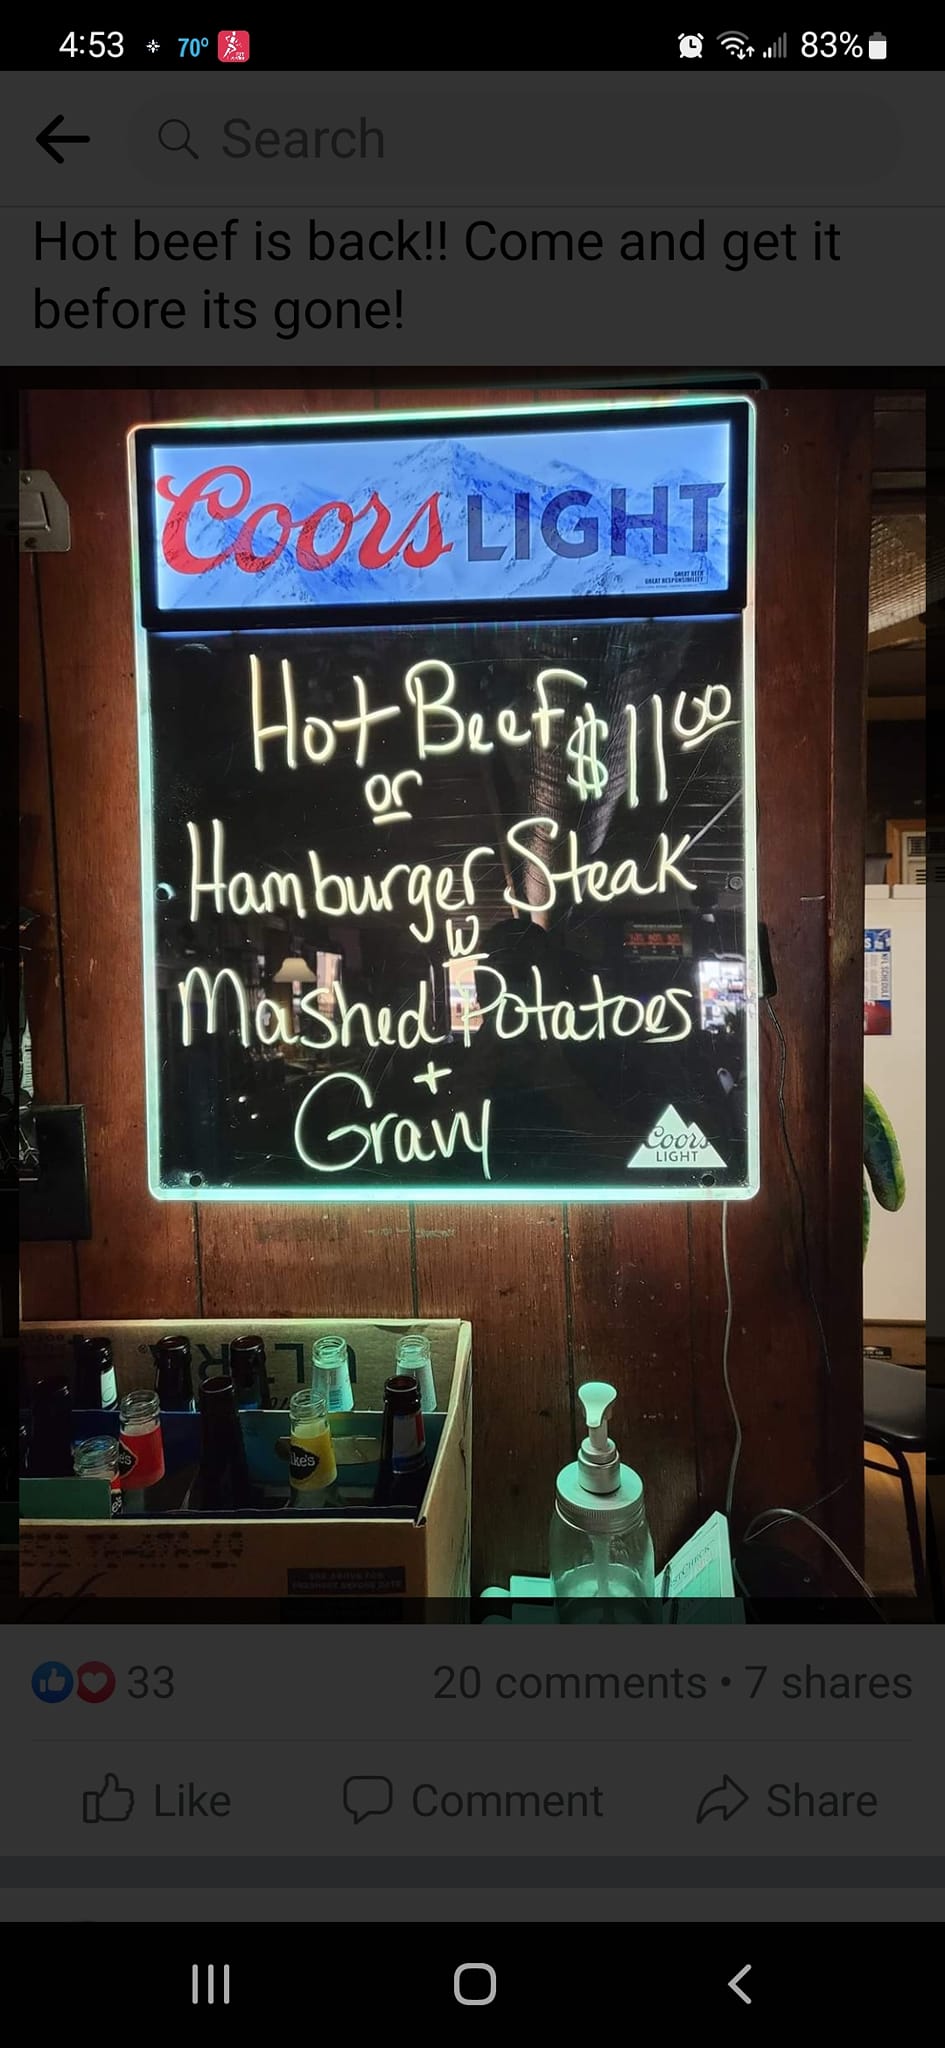 4:53 70° 83%
Search
Hot beef is back!! Come and get it
before its gone!
Coors LIGHT
GREAT BEER
GREAT RESPONSIBILITY
Hot Beef $11.00
or
Hamburger Steak
w
Mashed Potatoes
+
Gravy
Coors
LIGHT
NFL SCHEDULE
ULTRA
ke's
33 20 comments • 7 shares
Like Comment Share